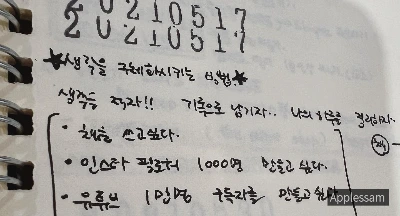 20210517
20210517
★생각을 구체화시키는 방법★
생각을 적자!! 기록으로 남기자.. 나의 하루를
· 책을 쓰고싶다.
· 인스타 팔로워 1000명 만들고 싶다.
· 유튜브 1만명 구독자를 만들고 싶다
Applessam